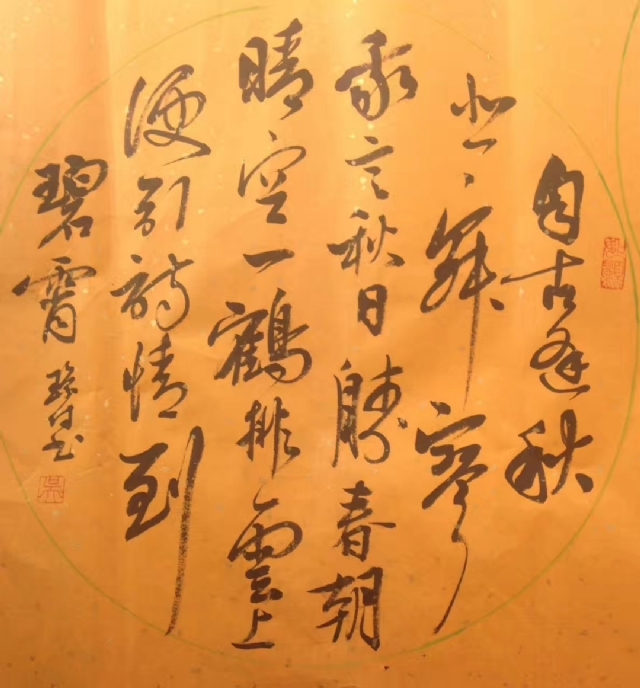 自古逢秋
悲寂寥
我言秋日勝春朝
晴空一鶴排雲上
便引詩情到
碧霄